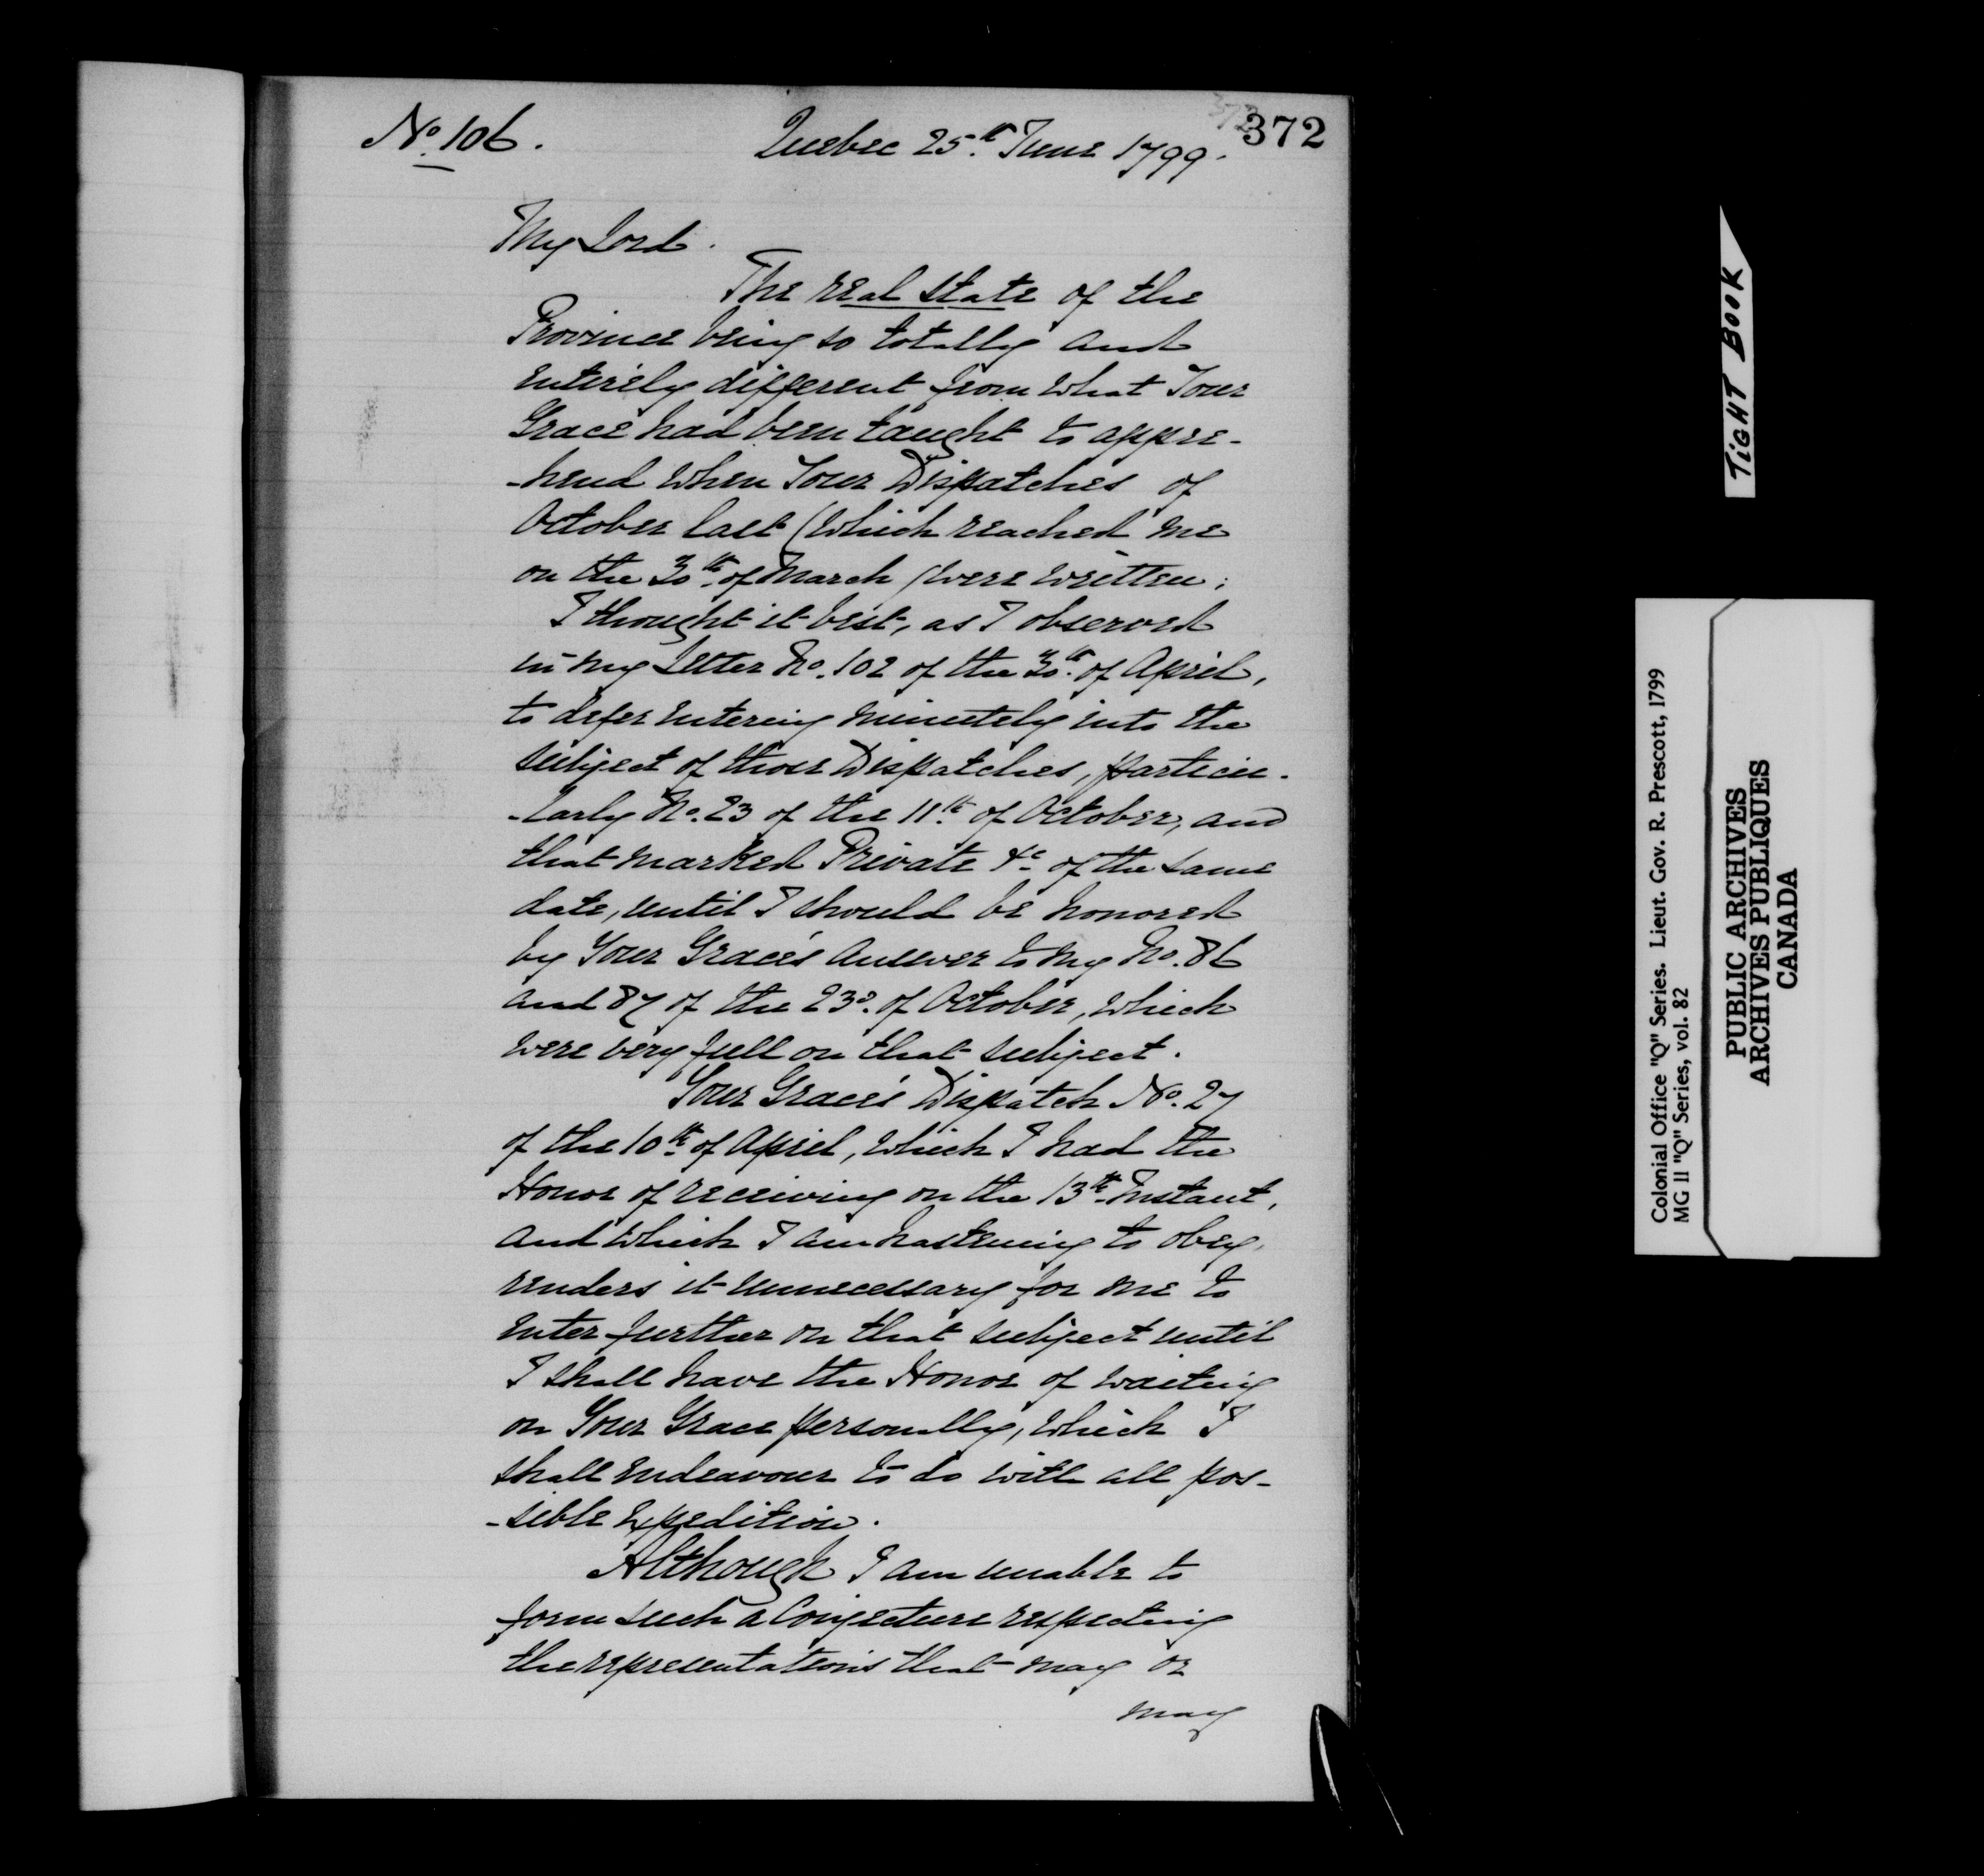 372
No. 106.
Quebec 25.th June 1799.
372
My Lord.
The real state of the
Province being so totally and
entirely different from what Your
Grace had been taught to appre-
-hend when Your Dispatches of
October last (which reached me
on the 30th. of March) were written;
I thought it best, as I observed
in my Letter No. 102 of the 30th. of April,
to defer entering minutely into the
subject of those Dispatches, particu-
-larly No. 23 of the 11th. of October, and
that marked Private &c. of the same
date, until I should be honored
by Your Grace's Answer to my No. 86
and 87 of the 23d. of October, which
were very full on that subject.
Your Grace's Dispatch No. 27
of the 10th. of April, which I had the
Honor of receiving on the 13th. Instant,
and which I am hastening to obey,
renders it unnecessary for me to
enter further on that subject until
I shall have the Honor of waiting
on Your Grace personally, which I
shall endeavour to do with all pos-
-sible Expedition.
Although I am unable to
form such a Conjecture respecting
the representations that may or
may
TIGHT BOOK
Colonial Office "Q" Series. Lieut. Gov. R. Prescott, 1799
MG II "Q" Series, vol. 82
PUBLIC ARCHIVES
ARCHIVES PUBLIQUES
CANADA